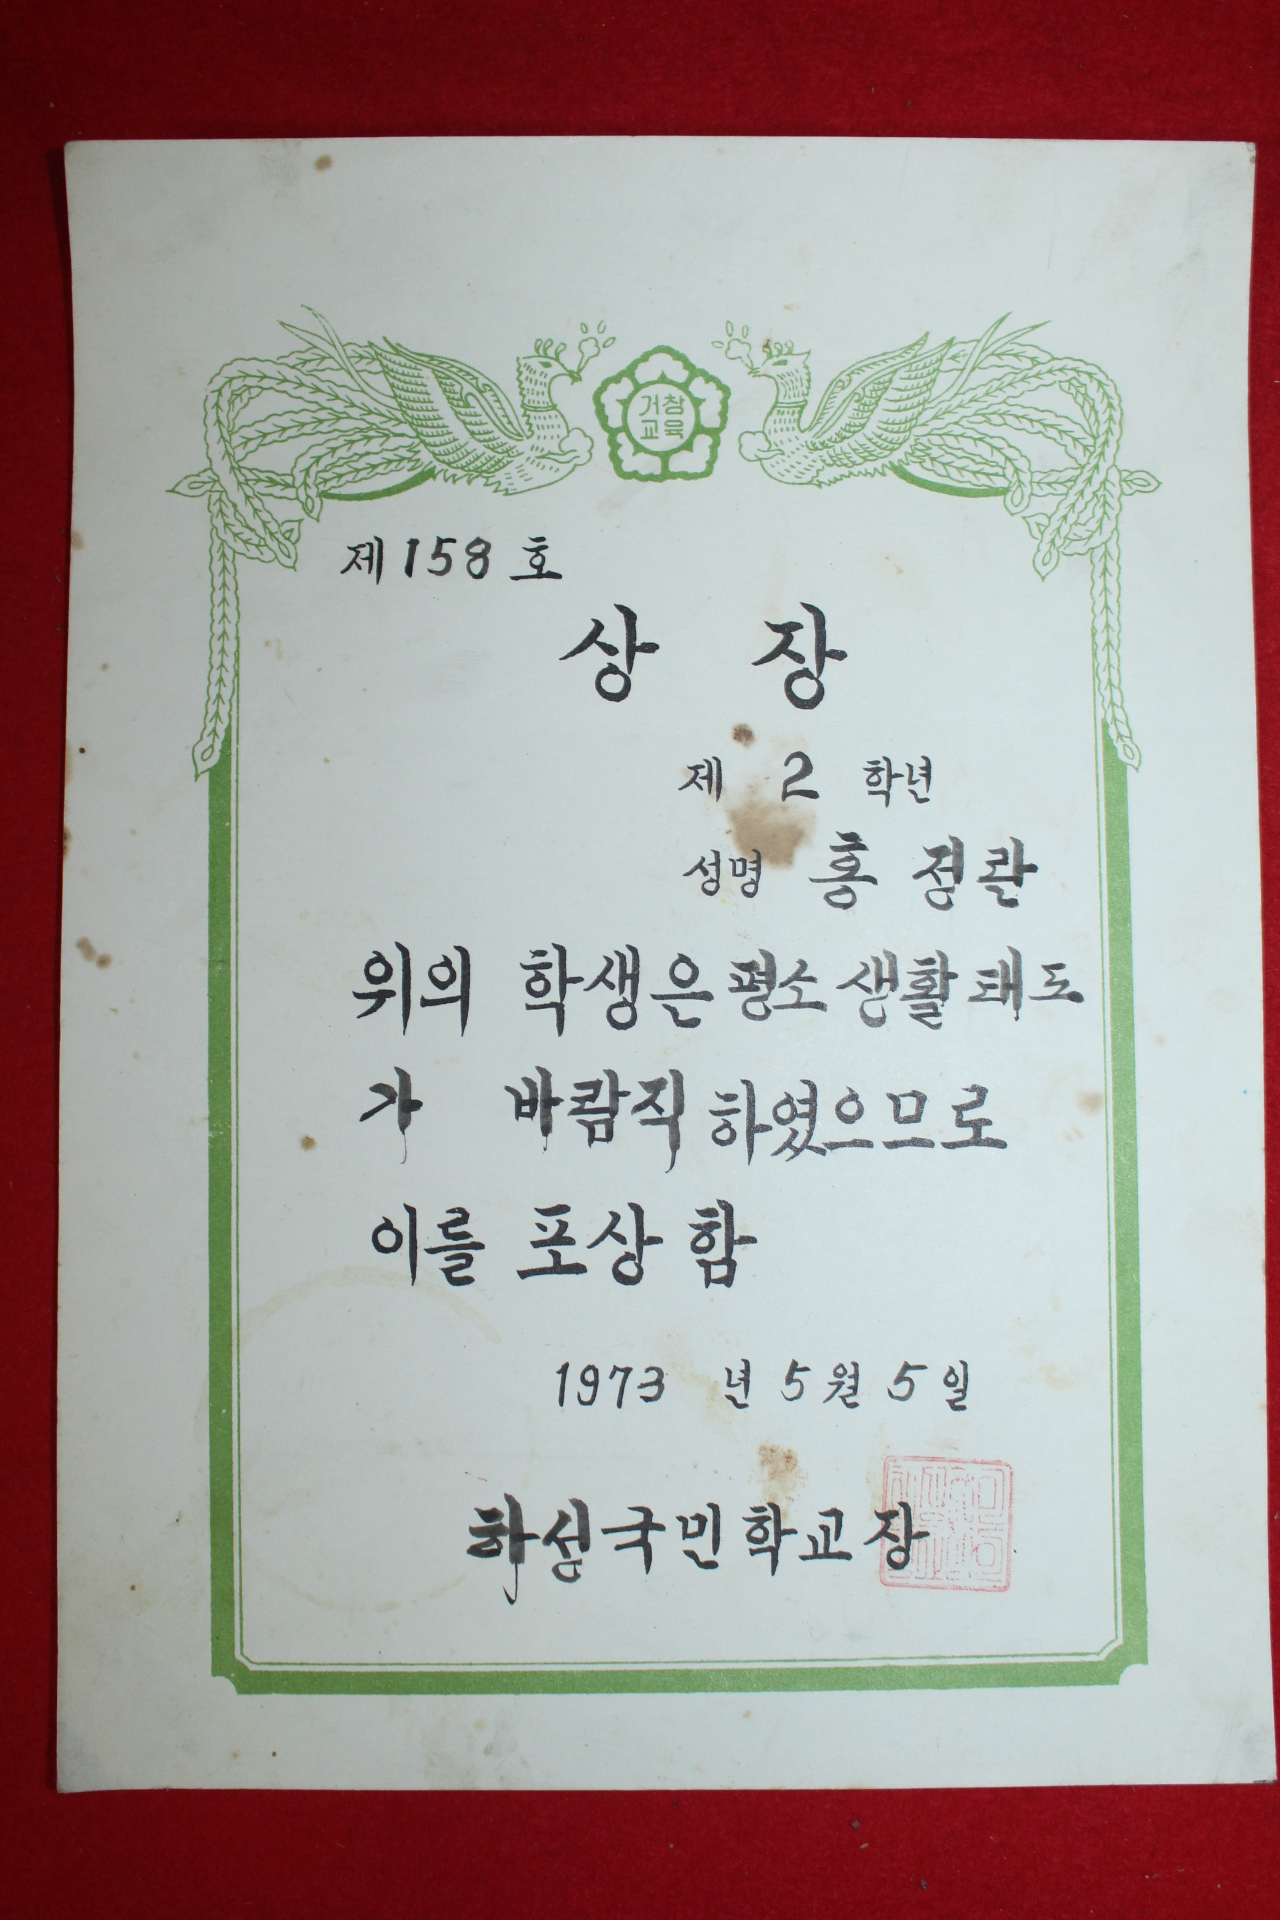 거창
교육
제 158 호
상 장
제 2 학년
성명 홍 정관
위의 학생은 평소 생활 태도
가 바람직 하였으므로
이를 포상 함
1973 년 5 월 5 일
하성국민학교장